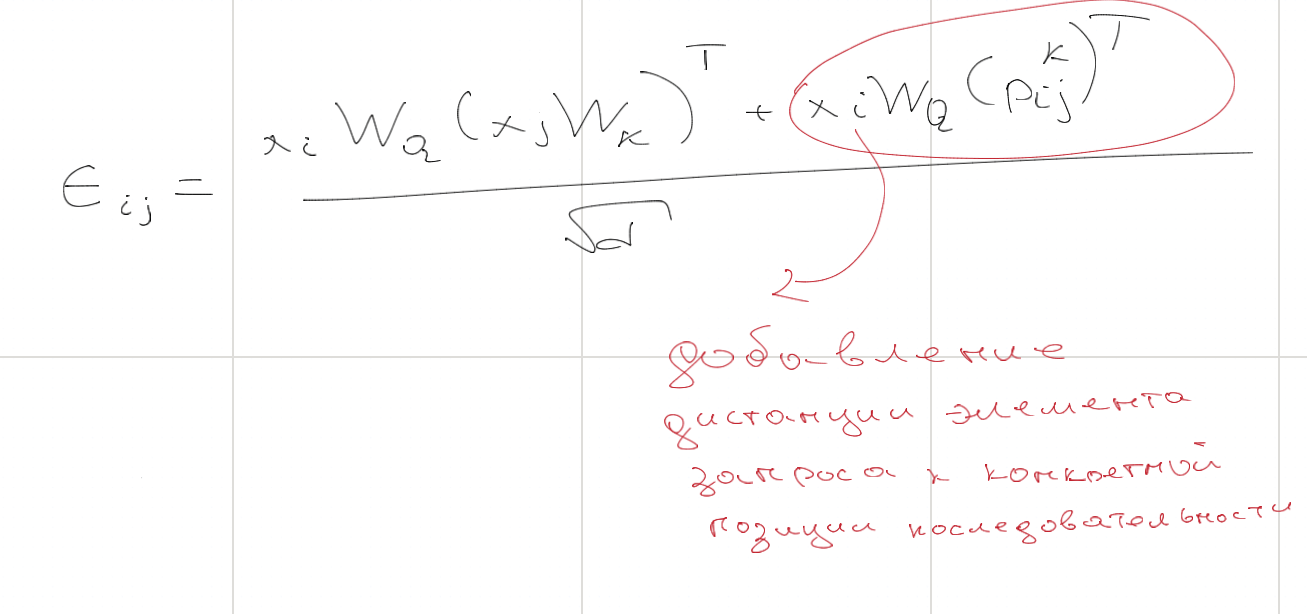 ϵ_{ij} = \frac{x_i W_Q (x_j W_K)^T + x_i W_Q (p_{ij}^K)^T}{\sqrt{d}}
добавление
дистанции элемента
запроса к конкретной
позиции последовательности